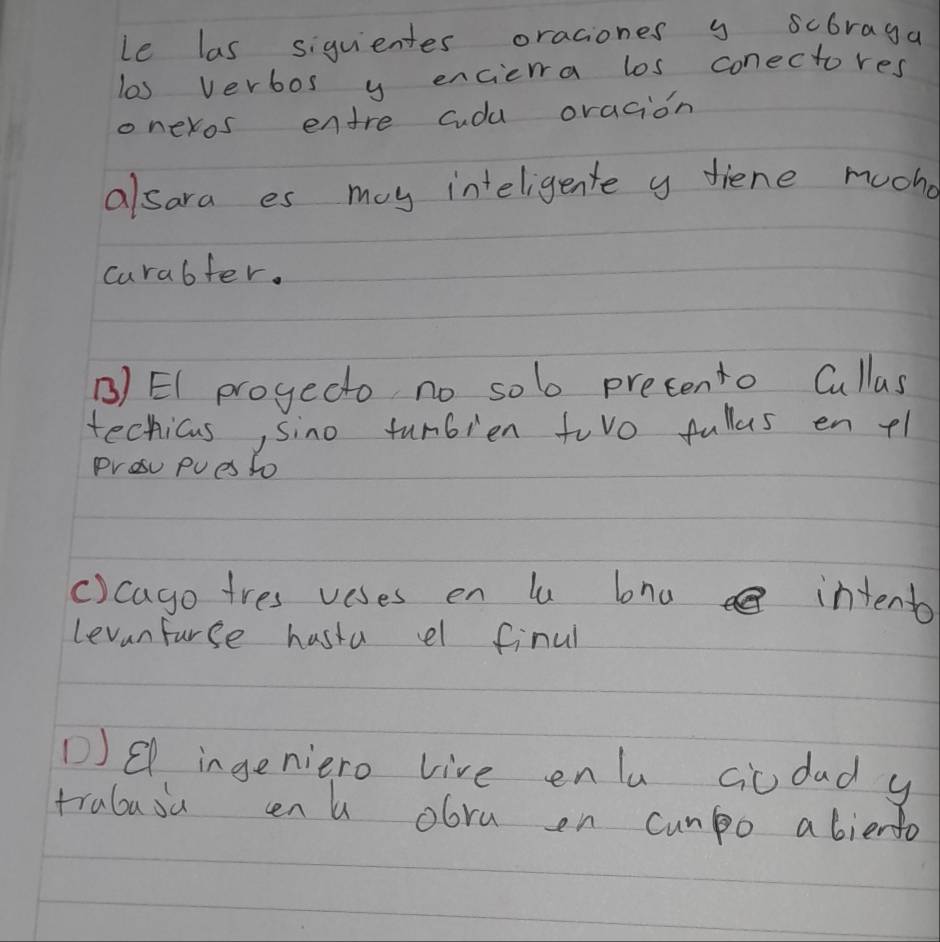 le las siguientes oraciones y subraya
los verbos y encierra los conectores
onexos entre cada oración
a) sara es muy inteligente y tiene mucho
carabter.
B) El proyecto no solo precento fallas
techicas, sino tambien tuvo fallas en el
presupuesto
c) cayo tres veses en la lona intento
levantarse hasta el final
D) El ingeniero vive en la ciudad y
trabasa en la obra en canpo abierto